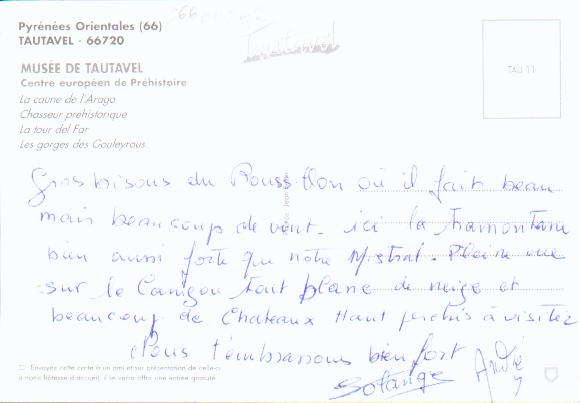 Pyrénées Orientales (66)
TAUTAVEL - 66720
Tautavel
MUSÉE DE TAUTAVEL
Centre européen de Préhistoire
La caune de l'Arago
Chasseur préhistorique
La tour del Far
Les gorges des Gouleyrous.
TAU 11
Gros bisous du Roussillon où il fait beau
mais beaucoup de vent. ici la tramontane
bien aussi forte que notre Mistral. Pleine vue
sur le Canigou tout blanc de neige et
beaucoup de Chateaux Haut perchés à visiter
Nous t'embrassons bien fort
Solange André
Envoyez cette carte à un ami et sur présentation de celle-ci
à notre hôtesse d'accueil, il se verra offrir une entrée gratuite.